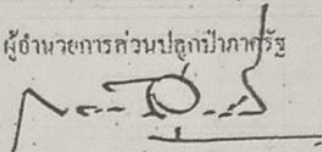 ผู้อำนวยการส่วนปลูกป่าภาครัฐ